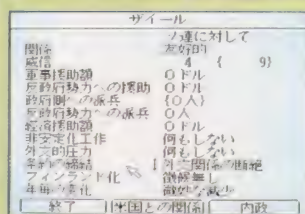 ザイール
ソ連に対して
関係 友好的
威信 4 { 9}
軍事援助額 0ドル
反政府勢力への援助 0ドル
政府側への派兵 {0人}
反政府勢力への派兵 0人
経済援助額 0ドル
非安定化工作 何もしない
外交的圧力 何もしない
条約の締結 外交関係の断絶
フィンランド化 徴候無し
微妙な減少
終了 米国との関係 内政